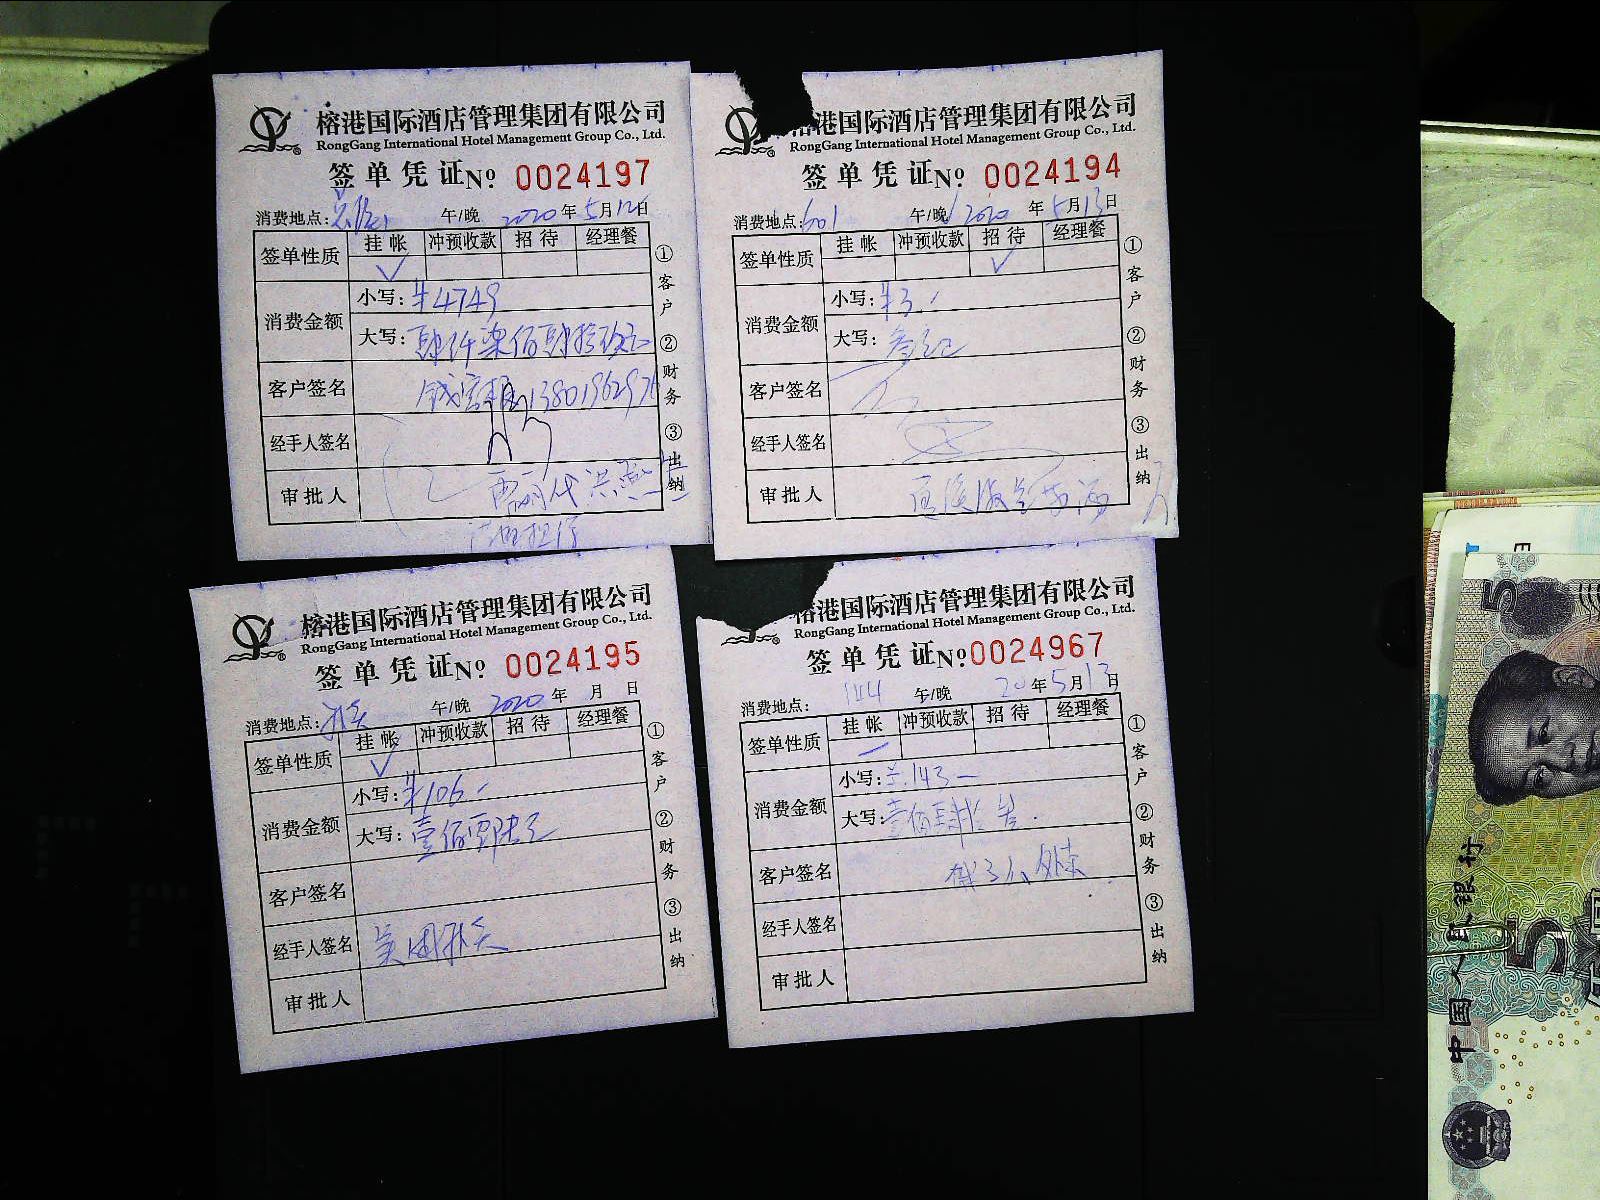 榕港国际酒店管理集团有限公司
RongGang International Hotel Management Group Co., Ltd.
签单凭证№ 0024197
消费地点: 午/晚 2020年5月12日
签单性质 挂帐 冲预收款 招待 经理餐
✓
消费金额 小写: ¥4749
大写: 肆仟柒佰肆拾玖元
客户签名 1380196297
经手人签名
审批人
①客户 ②财务 ③出纳
港国际酒店管理集团有限公司
RongGang International Hotel Management Group Co., Ltd.
签单凭证№ 0024194
消费地点: 601 午/晚 2020年5月13日
签单性质 挂帐 冲预收款 招待 经理餐
✓
消费金额 小写: ¥3.-
大写: 叁元
客户签名
经手人签名
审批人
①客户 ②财务 ③出纳
榕港国际酒店管理集团有限公司
RongGang International Hotel Management Group Co., Ltd.
签单凭证№ 0024195
消费地点: 午/晚 2020年 月 日
签单性质 挂帐 冲预收款 招待 经理餐
✓
消费金额 小写: ¥106.-
大写: 壹佰零陆元
客户签名
经手人签名
审批人
①客户 ②财务 ③出纳
榕港国际酒店管理集团有限公司
RongGang International Hotel Management Group Co., Ltd.
签单凭证№ 0024967
消费地点: 午/晚 20年5月13日
签单性质 挂帐 冲预收款 招待 经理餐
消费金额 小写: 143-
大写: 壹佰肆拾
客户签名
经手人签名
审批人
①客户 ②财务 ③出纳
中国人民银行
5
5